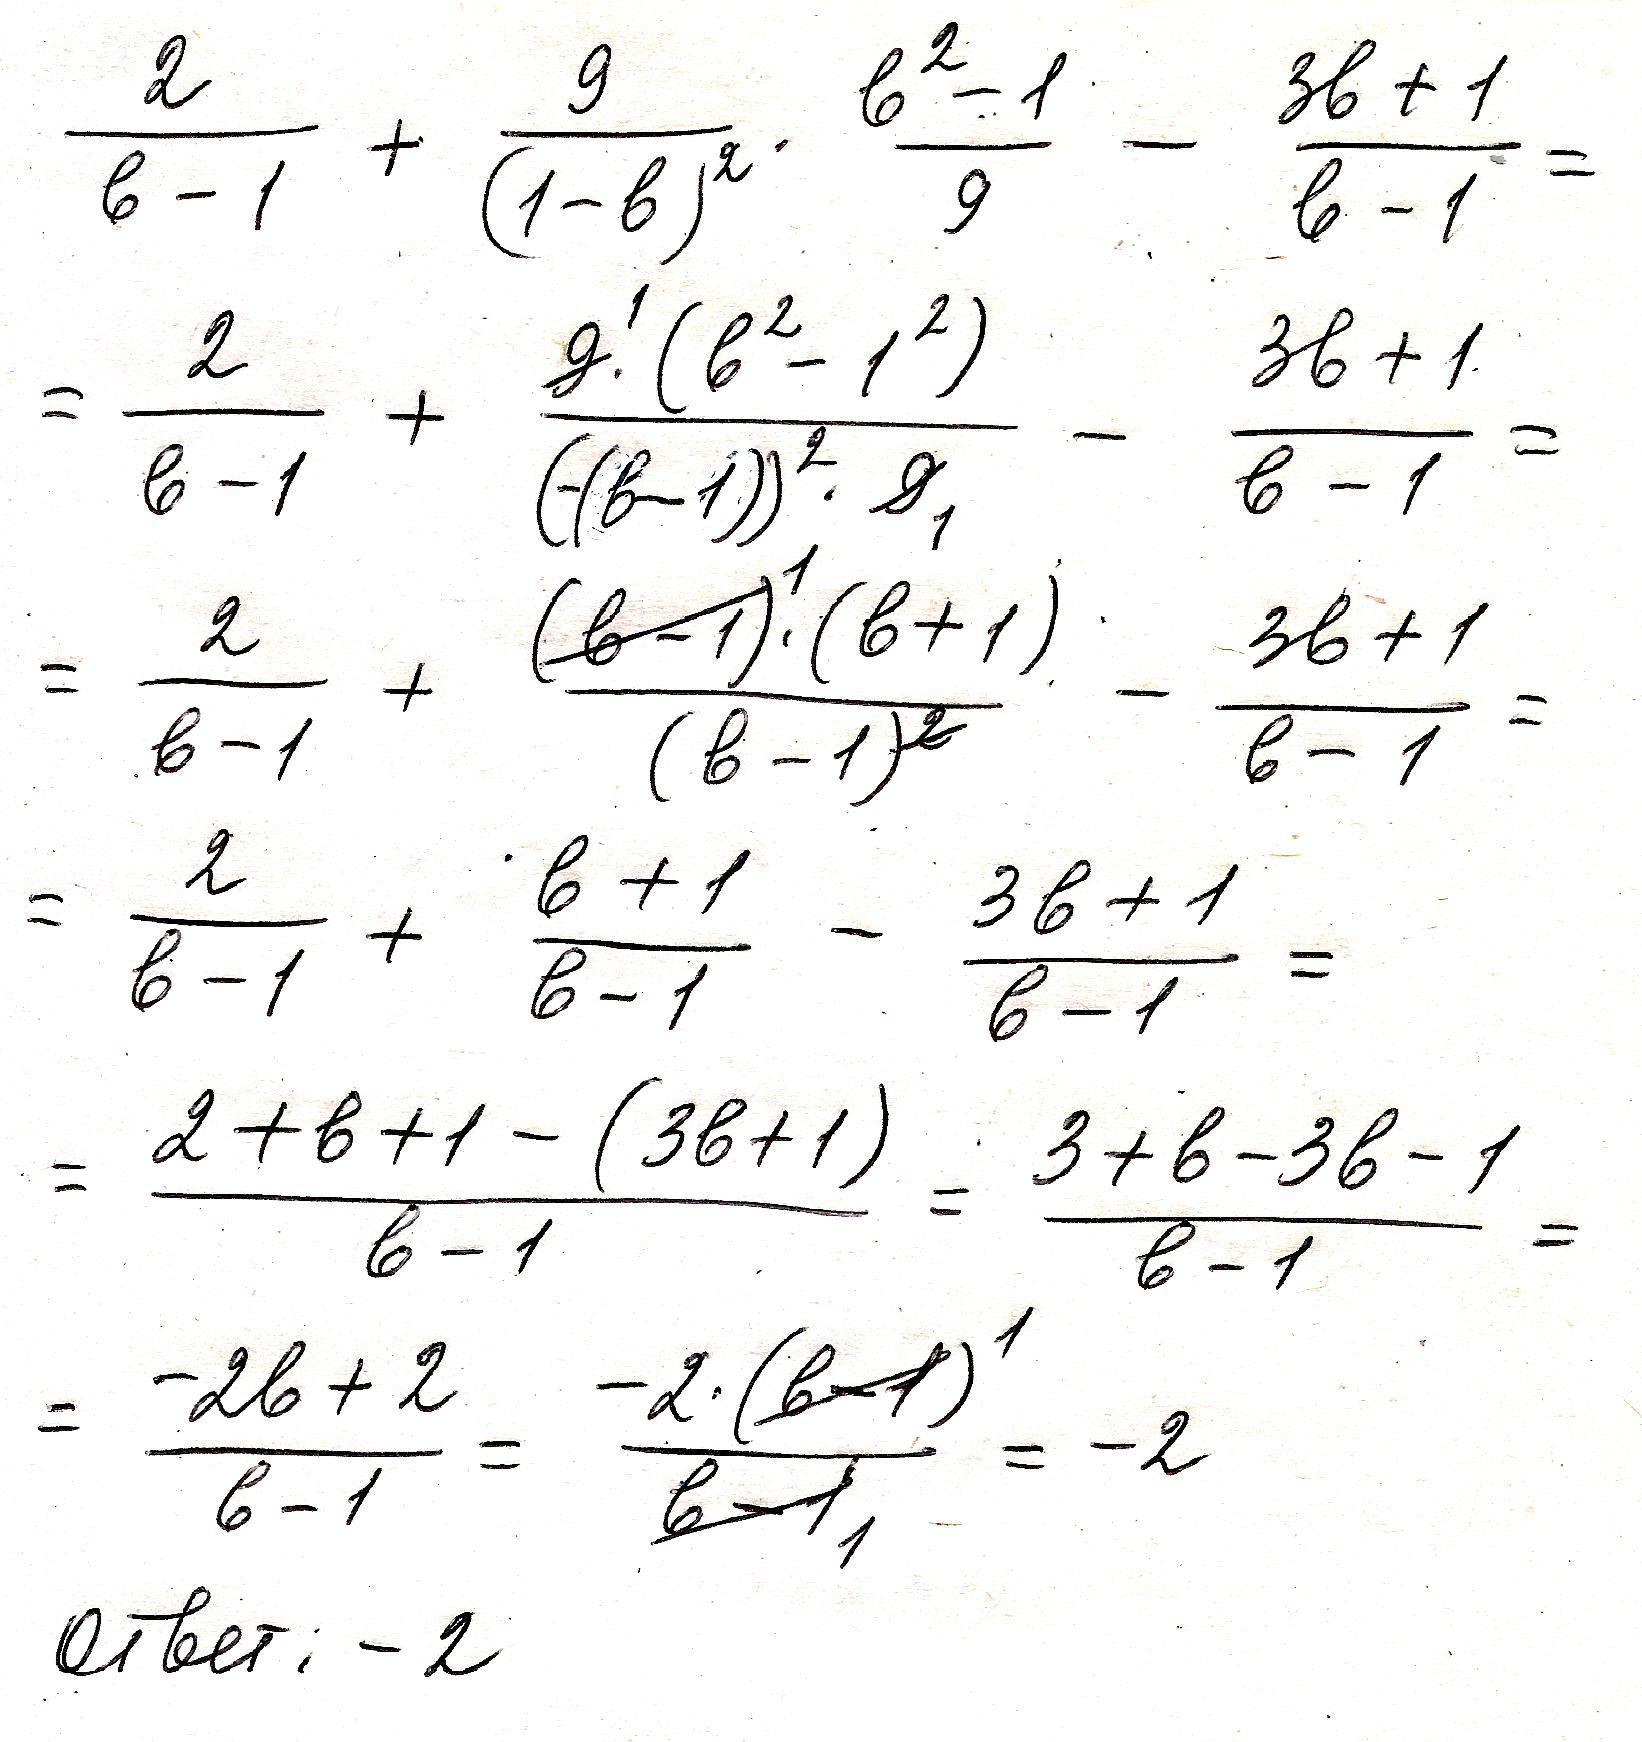 2/(b-1) + 9/(1-b)² · (b²-1)/9 - (3b+1)/(b-1) =
= 2/(b-1) + 9¹·(b²-1²)/((-(b-1))²·9₁) - (3b+1)/(b-1) =
= 2/(b-1) + (b-1)¹·(b+1)/(b-1)² - (3b+1)/(b-1) =
= 2/(b-1) + (b+1)/(b-1) - (3b+1)/(b-1) =
= (2+b+1-(3b+1))/(b-1) = (3+b-3b-1)/(b-1) =
= (-2b+2)/(b-1) = -2·(b-1)¹/(b-1)₁ = -2
Ответ: -2